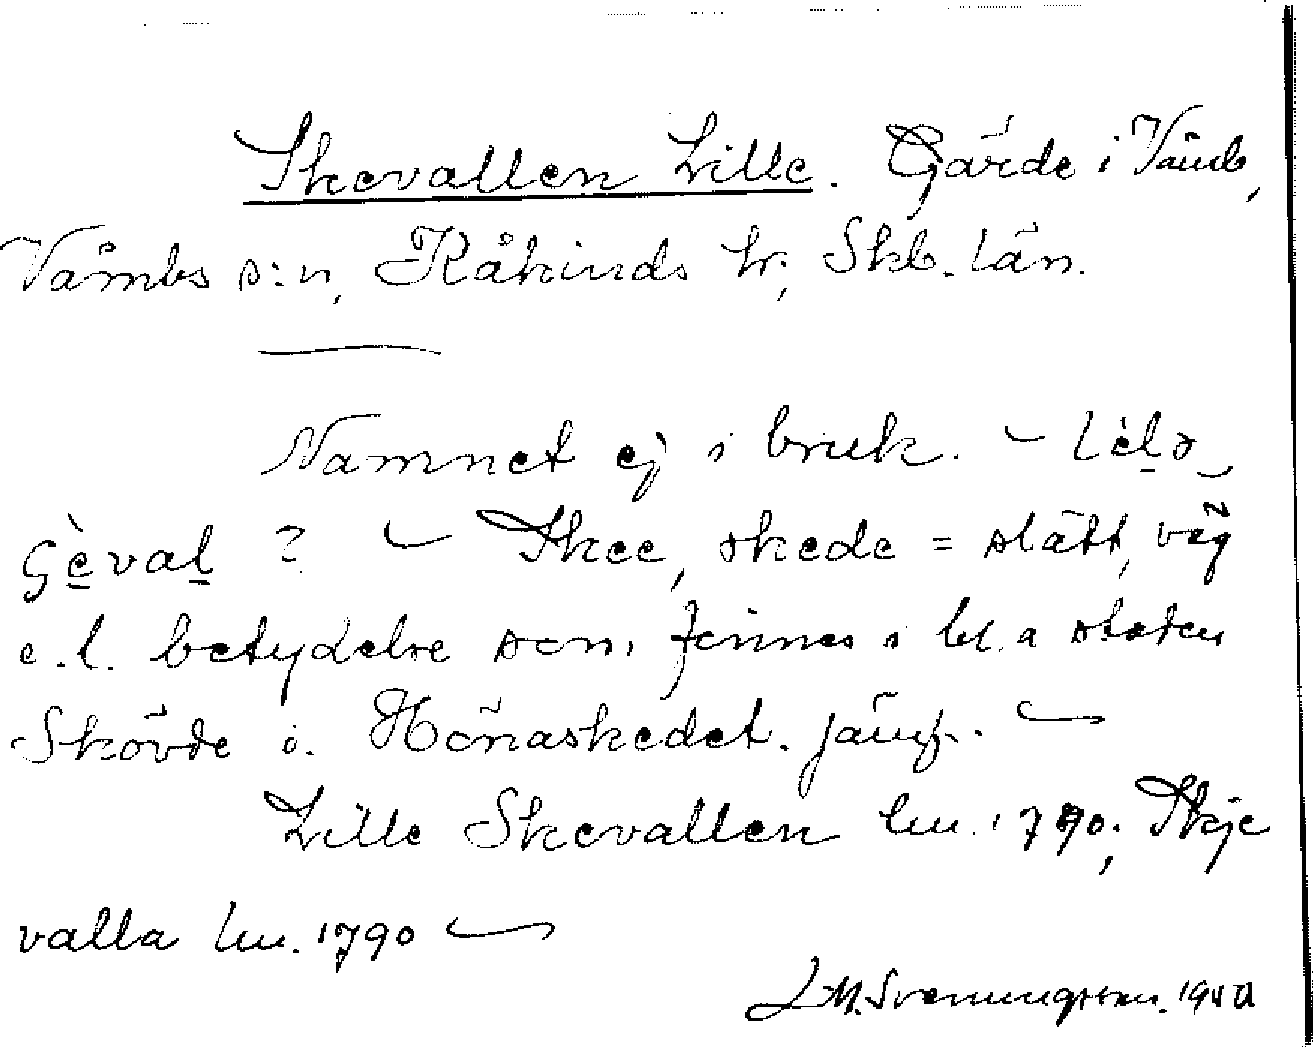 Skevallen Lille. Gärde i Våmb,
Våmbs s:n, Kåkinds hr; Skb. län.
Namnet ej i bruk. — 
? — Skee, skede = slätt, väg
e.l. betydelse som finnes i bl. a staden
Skövde o. Hönaskedet. jämf. —
Lille Skevallen lm. 1790; Skje
valla lm. 1790 —